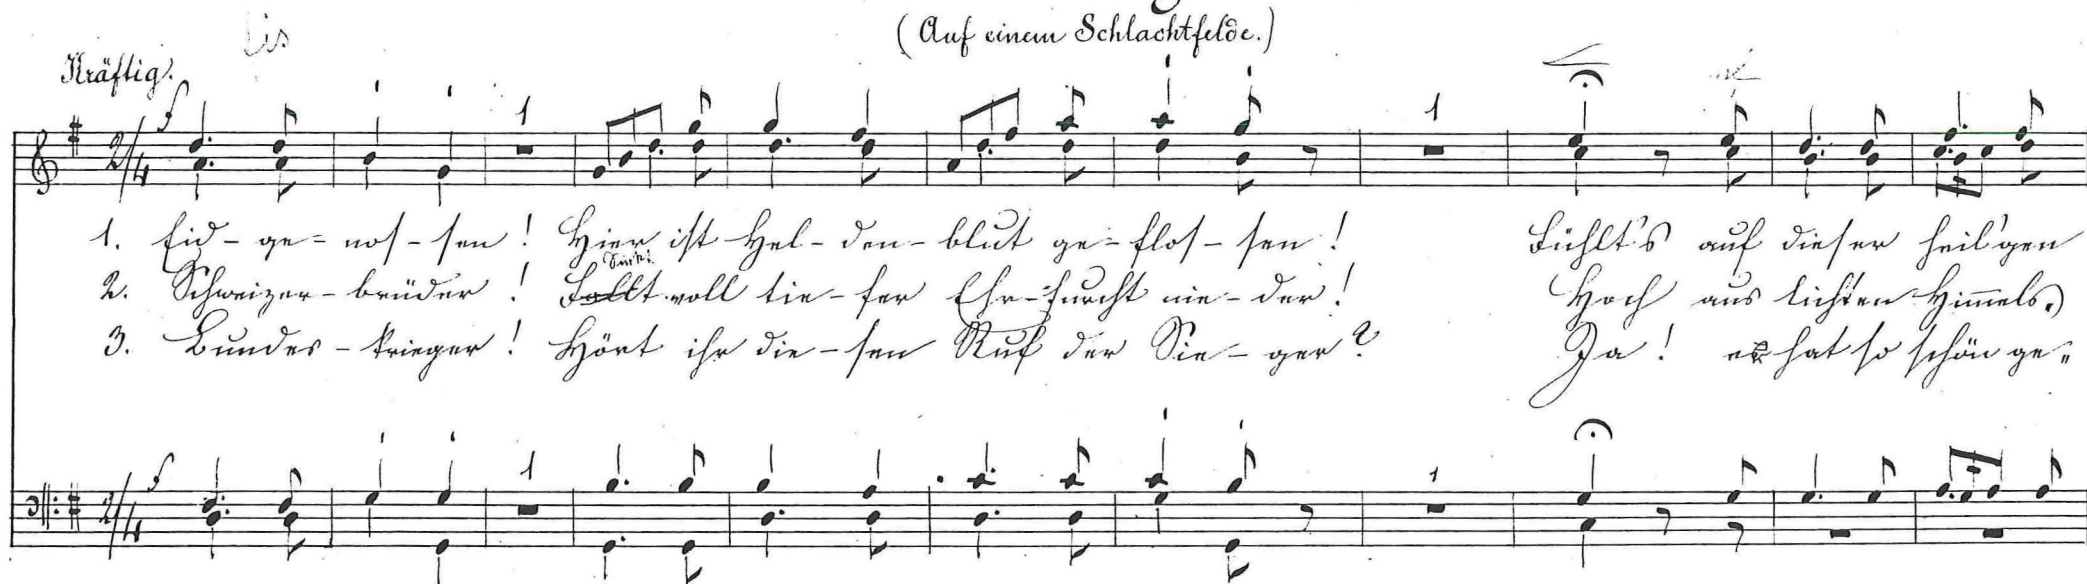 (Auf einem Schlachtfelde.)
Kräftig.
f
2/4
1
1
1. Eid-ge-nos-sen! Hier ist Hel-den-blut ge-flos-sen! Fühlt's auf dieser heil'gen
Sinkt
2. Schweizer-brüder! Fallt voll tie-fer Ehr-furcht nie-der! Hoch aus lichten Himmels-
3. Bundes-krieger! Hört ihr die-sen Ruf der Sie-ger? Ja! er hat so schön ge-
f
2/4
1
1